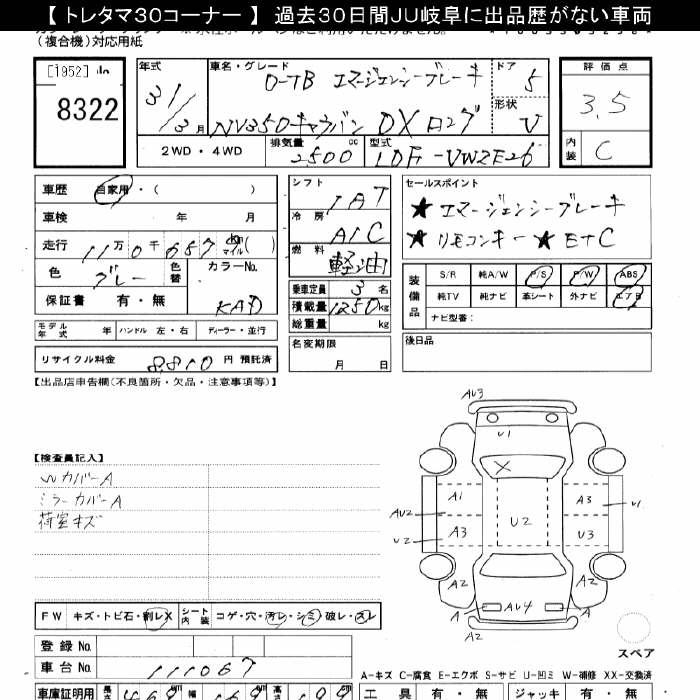 【 トレタマ３０コーナー 】 過去３０日間ＪＵ岐阜に出品歴がない車両
（複合機）対応用紙
[1952]
8322
年式
31/3月
車名・グレード
D-TB エマージェンシーブレーキ
NV350キャラバン DX ロング
ドア
5
形状
V
2WD・4WD
排気量
2500 cc
型式
LDF-VW2E26
評価点
3.5
内装
C
車歴 自家用・（ ）
車検 年 月
走行 11万0千657 km マイル( )
色 グレー 色替
カラーNo.
KAD
保証書 有・無
モデル年式 年 ハンドル 左・右 ディーラー・並行
リサイクル料金 8,810 円 預託済
シフト
IAT
冷房
A/C
燃料
軽油
乗車定員 3 名
積載量 1250 kg
総重量 kg
名変期限
月 日
セールスポイント
★ エマージェンシーブレーキ
★ リモコンキー ★ ETC
装備品
S/R 純A/W P/S P/W ABS
純TV 純ナビ 革シート 外ナビ エアB
ナビ型番：
後日品
【出品店申告欄（不良箇所・欠品・注意事項等）】
【検査員記入】
Wカバー A
ミラーカバー A
荷室キズ
AU3
U1
X
A1
A3
U1
AU2
U2
U2
A3
U3
A2
A2
A
AU4
A
A2
スペア
FW キズ・トビ石・割レX シート内装 コゲ・穴・汚レ・シミ・破レ・スレ
登録 No.
車台 No. 111067
A-キズ C-腐食 E-エクボ S-サビ U-凹ミ W-補修 XX-交換済
車庫証明用 長さ 469 幅 169 高さ 199
工具 有・無 ジャッキ 有・無